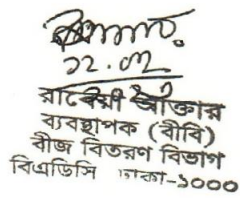 ১২.০৫
রাবেয়া আক্তার
ব্যবস্থাপক (বীবি)
বীজ বিতরণ বিভাগ
বিএডিসি ঢাকা-১০০০